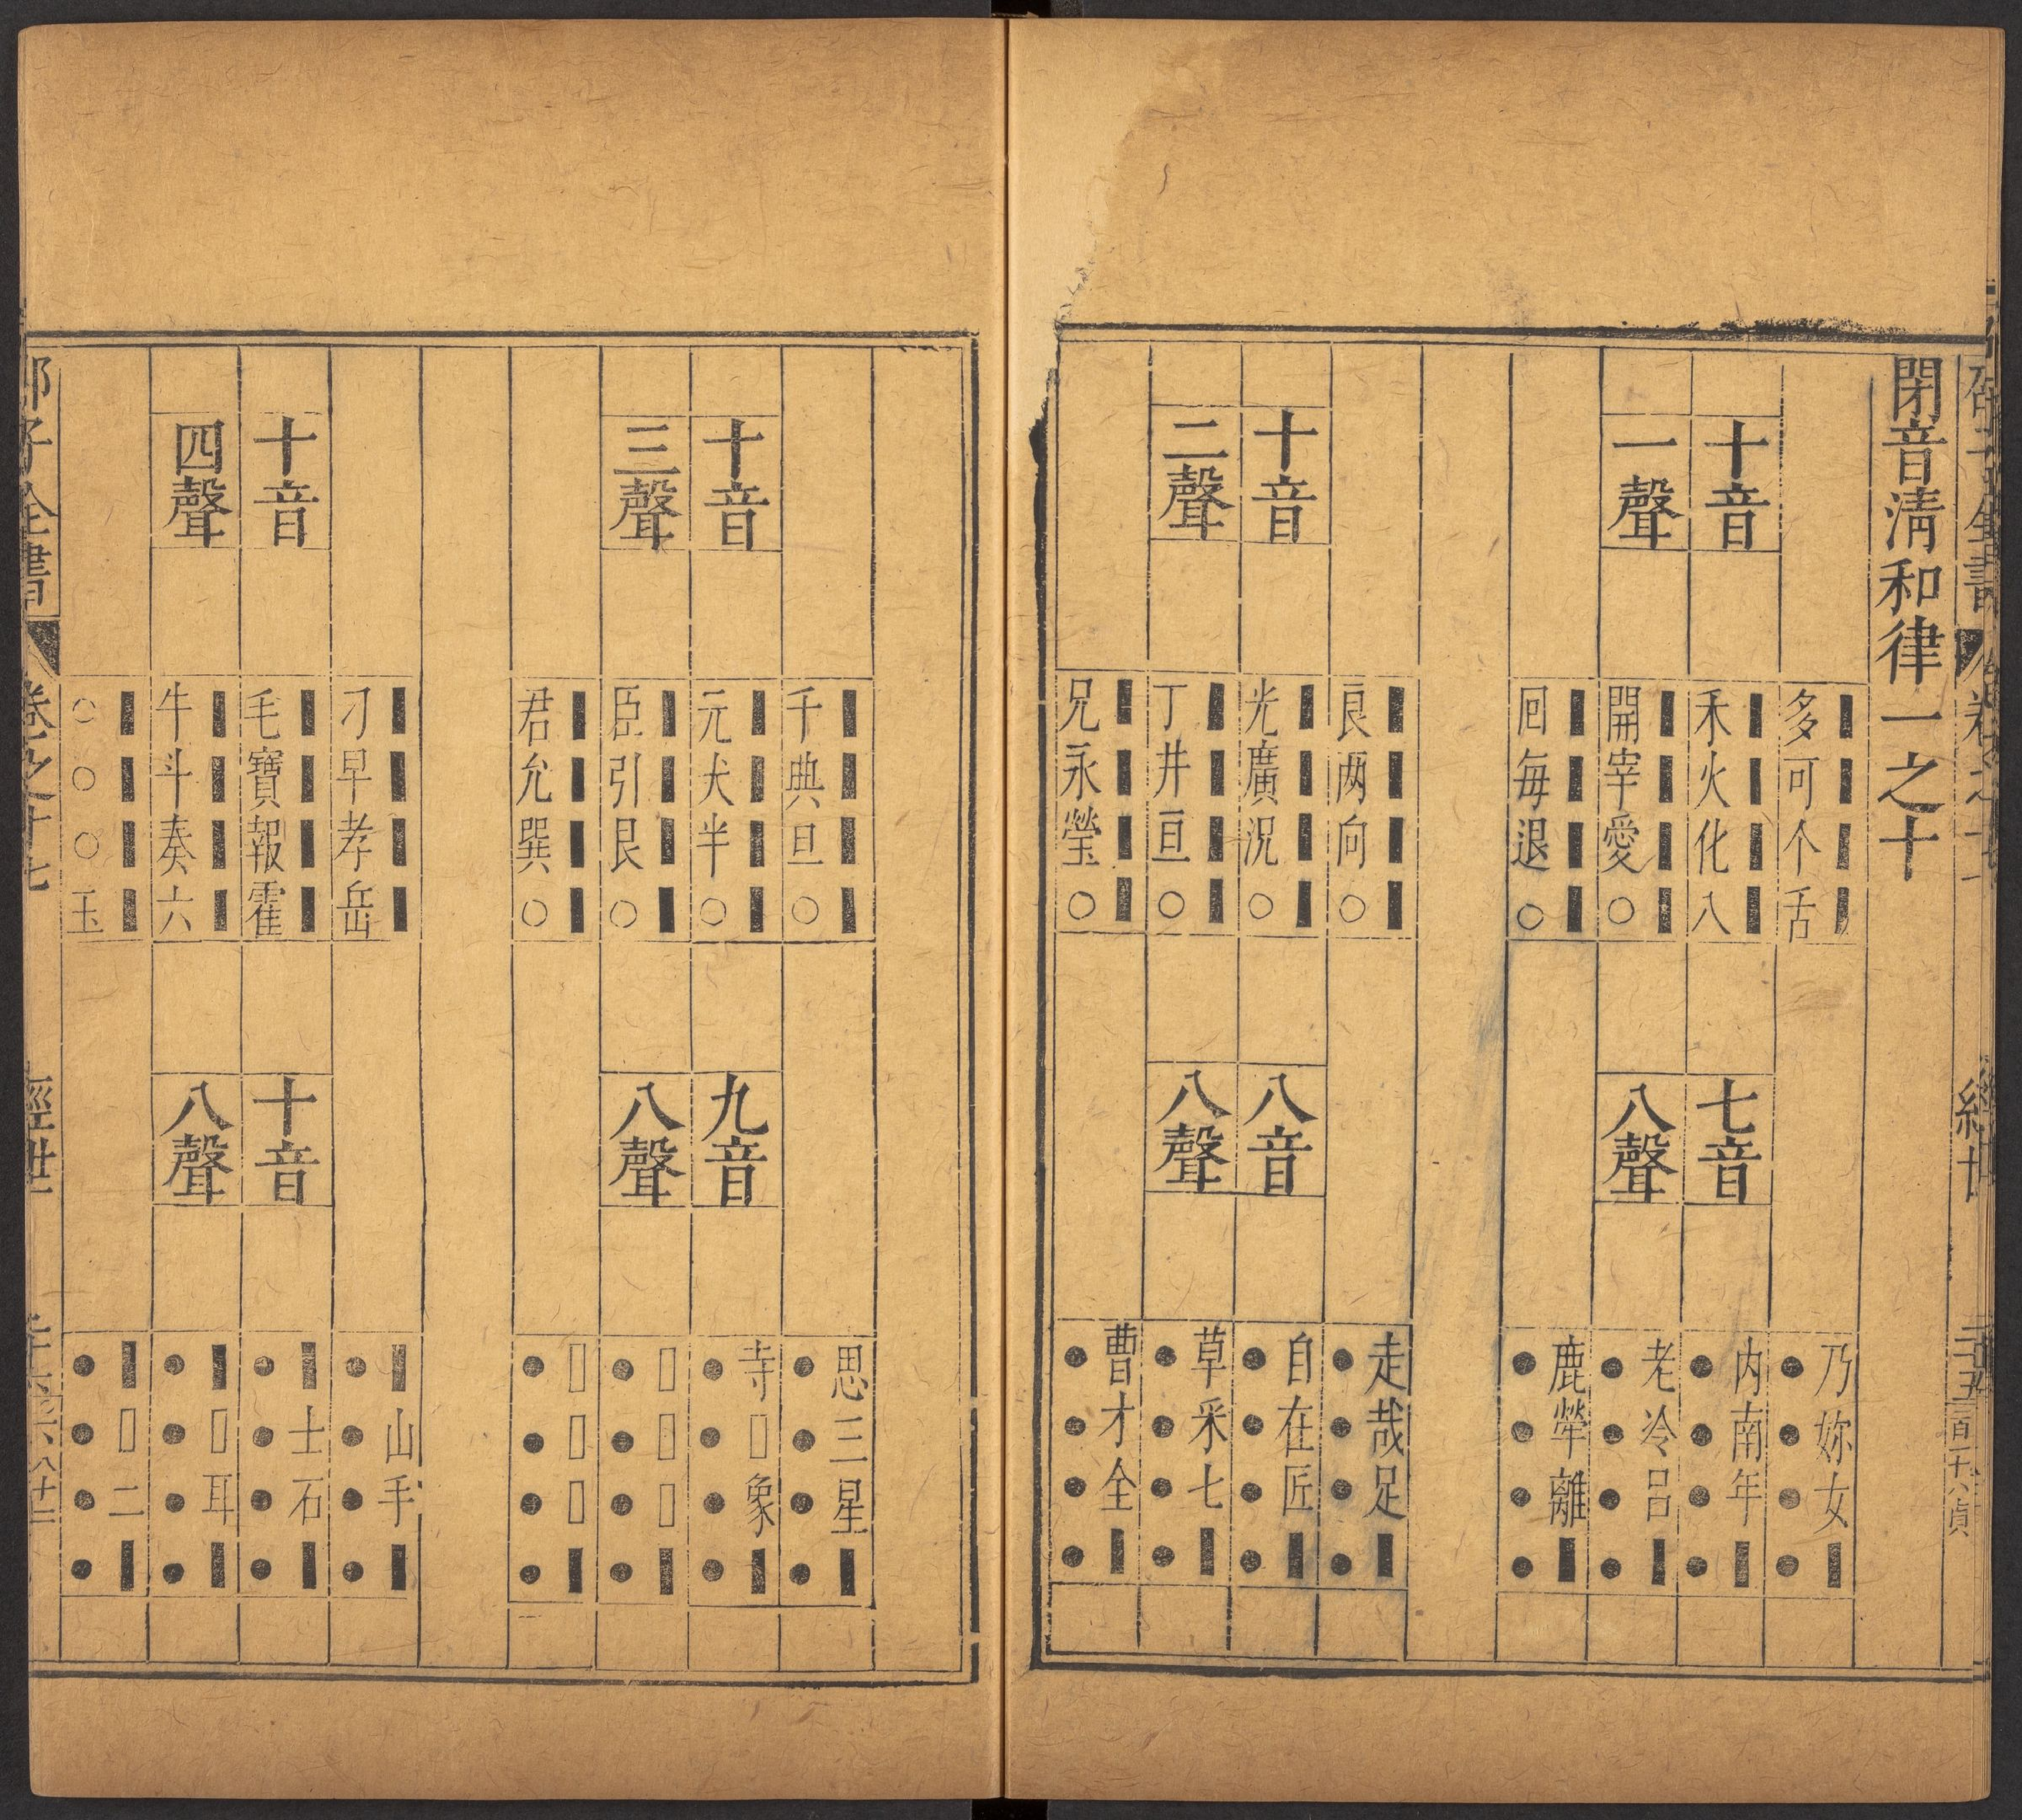 閉音淸和律一之十
多可个舌
十音
禾火化八
一聲
開宰愛○
回每退○
七音
八聲
乃妳女▮
●●●●
内南年▮
●●●●
老冷呂▮
●●●●
鹿犖離▮
●●●●
良兩向○
十音
光廣況○
二聲
丁井亘○
兄永瑩○
八音
八聲
走哉足▮
●●●●
自在匠▮
●●●●
草采七▮
●●●●
曹才全▮
●●●●
千典旦○
十音
元犬半○
三聲
臣引艮○
君允巽○
九音
八聲
思三星▮
●●●●
寺▯象▮
●●●●
▯▯▯▮
●●●●
▯▯▯▮
●●●●
刁早孝岳
十音
毛寶報霍
四聲
牛斗奏六
○○○玉
十音
八聲
▮山手▮
●●●●
▮士石▮
●●●●
▮▯耳▮
●●●●
▮▯二▮
●●●●
邵子全書
卷之十七
經世